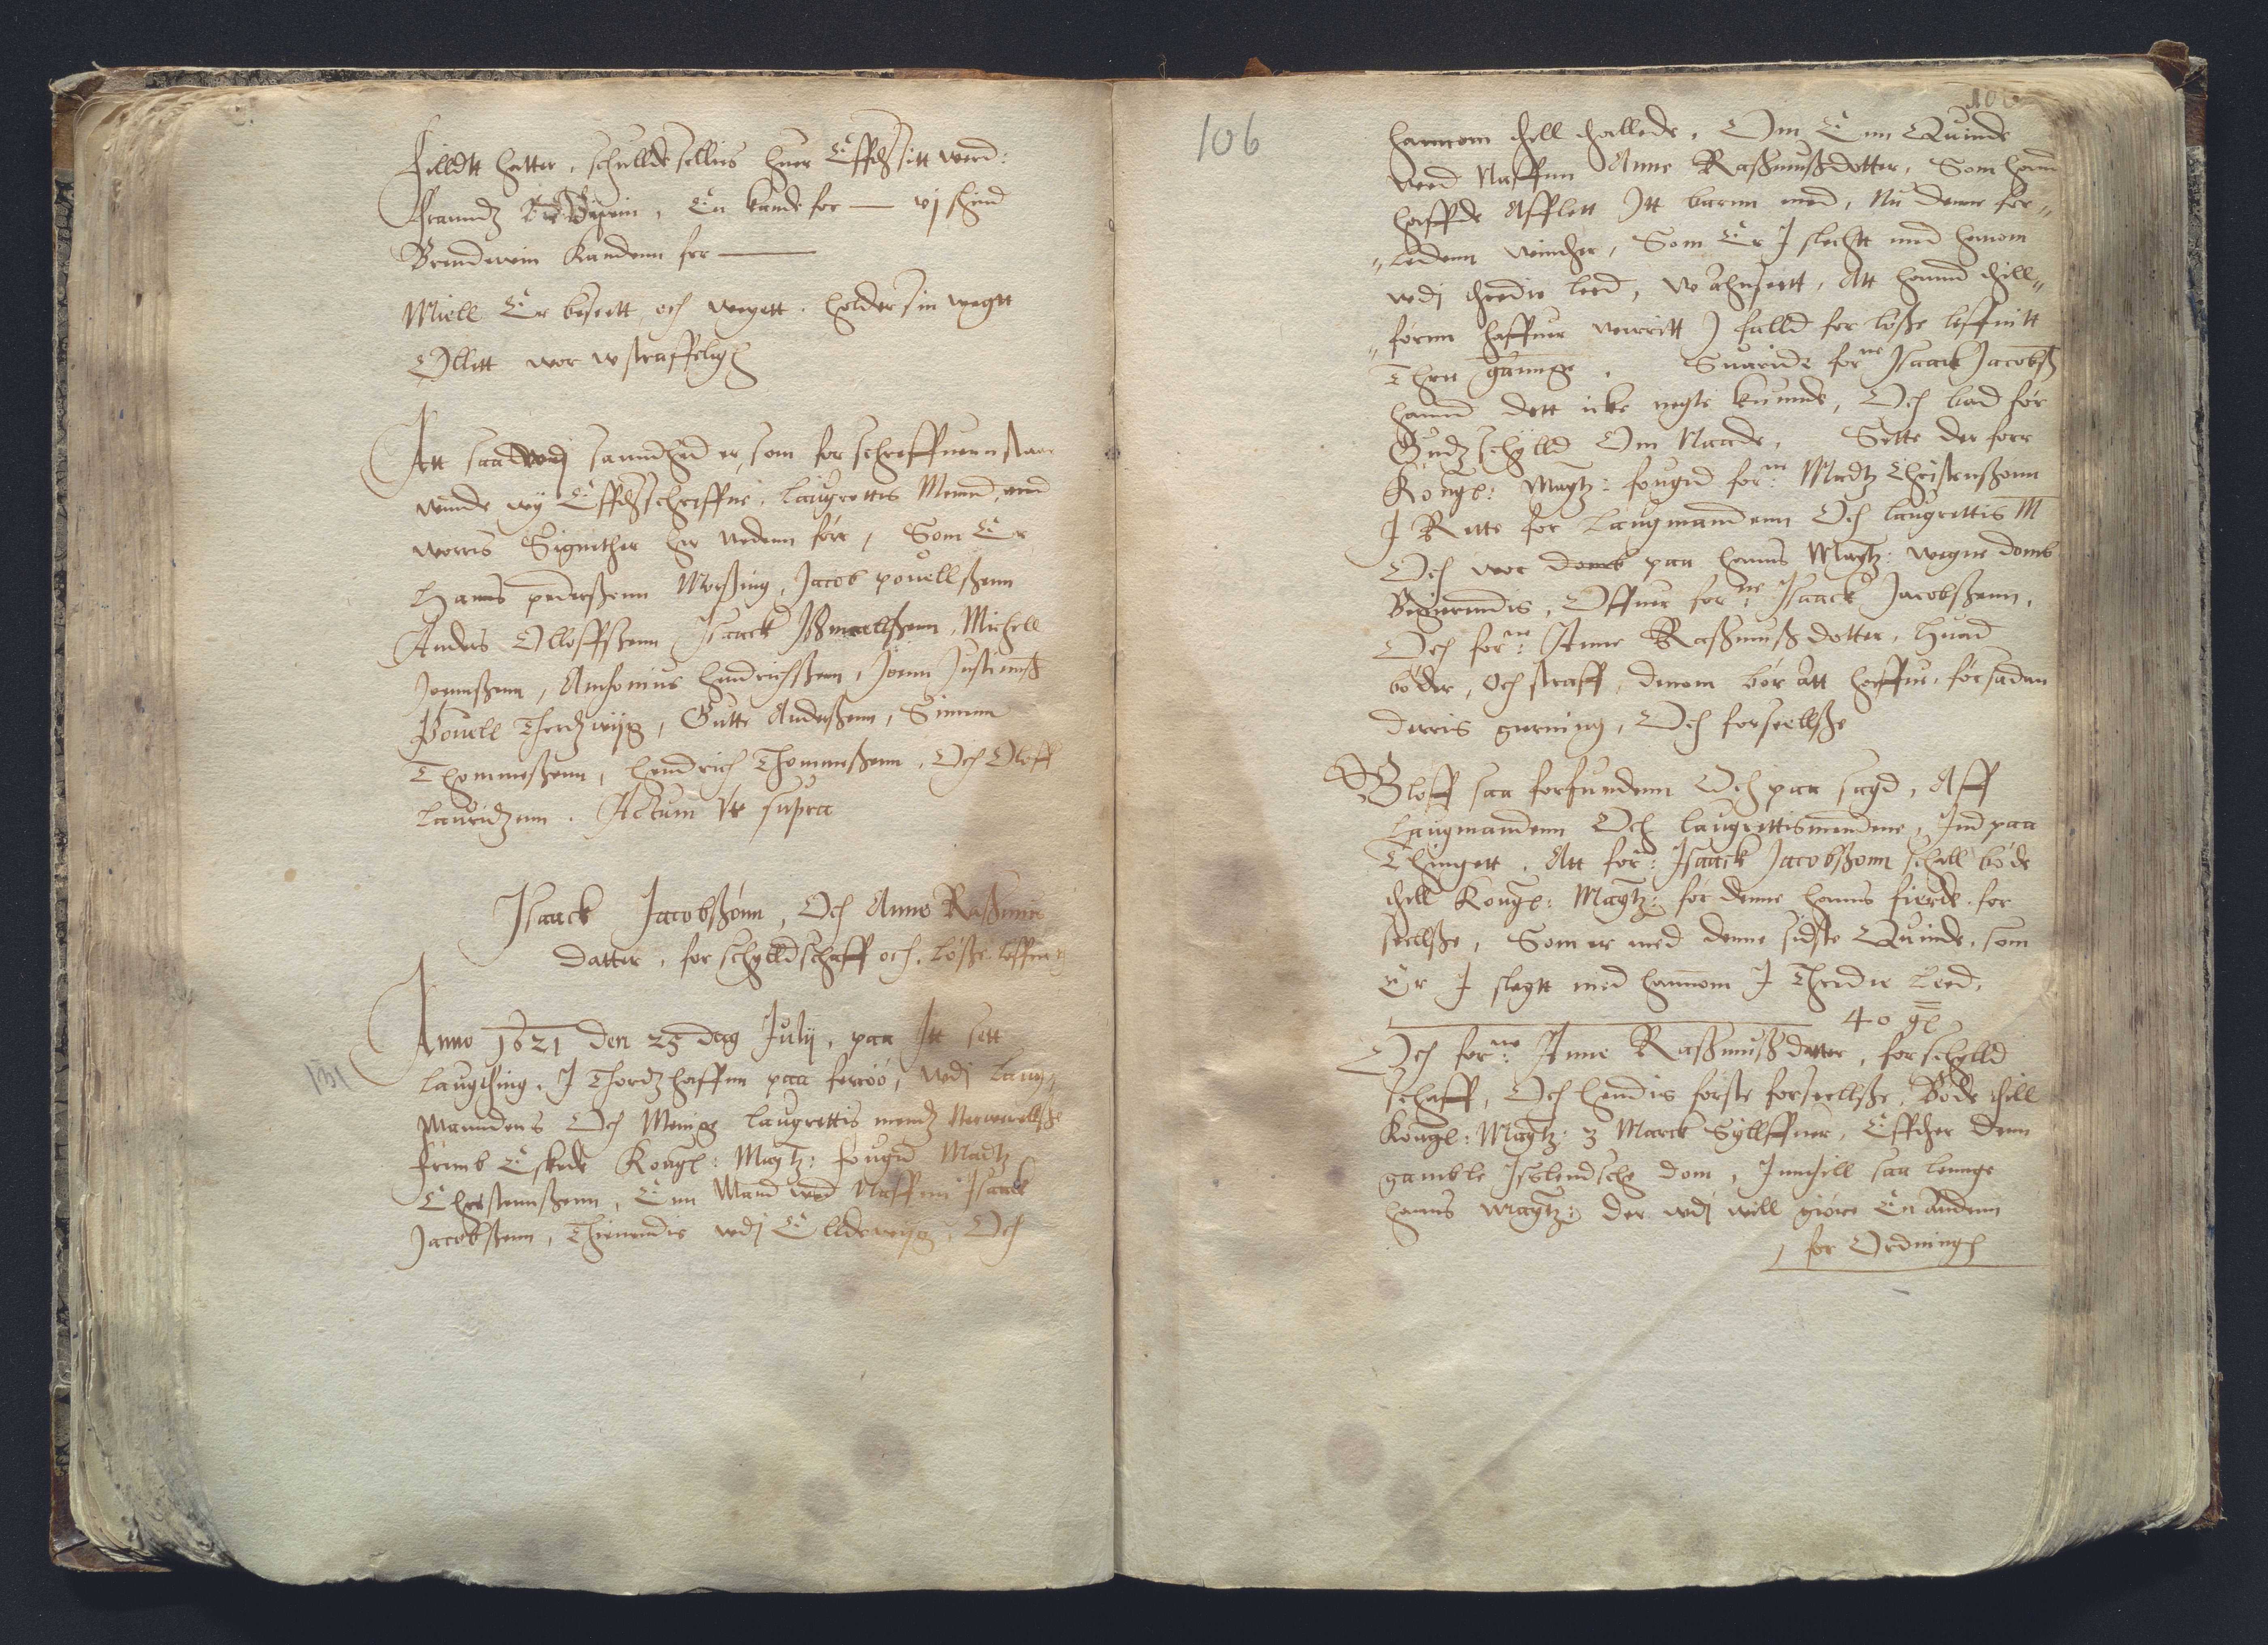 Filldtt hatter, schullde sellies huer Effthersitt werd:
Franndz Brendeviin, En kande for — vj skind
Brendewin Kanden for —
Miell Er besett, och weyett. holder sin wegtt
Ollitt wor wstraffelig
Att saa wdj sanndhed er, som forschreffuenn staar
winde wij Effthschreffne, Laugrettis Mennd, med
worris Signether her nedenn förr, Som Er
Hanns pederssenn Morssing, Jacob pouellssenn
Anders Olloffssenn Isaack Issmaellssenn, Michell
Joennssenn, Anthonius Hendrichssenn, Joenn Justinuss
Pouell Thordzwiig, Gutte Anderssenn, Simenn
Thommessenn, Hendrich Thommessenn, Och Oloff
Lauridzenn. Actum Vt supra
Isaack Jacobssönn, Och Anne Rassmus
datter, for schylldschaff och, Lösse Leffnit
Anno 1621 den 25 dag Julij, paa Itt sett
131
Laugthing, I Thordzhaffnn paa feröö, wdj Laug,
Manndens Och Menige Laugrettis mendz Nerwerellsse
frimb Eskede Kongl: Maytz: fougid Madtz
Christennssenn, Enn Mand wed Naffnn Isaack
Jacobssenn, Thienendis wdj Elldewiig, Och
106
106
hannom thill thallede, Om Enn Quinde
wed Naffnn Anne Rassmussdotter, Som hannd
haffde Afflett Itt barnn med, Nu denne for„
„ledenn Winther, Som Er I slechtt med hanom
wdj thredie leed, W Ahnseett, Att hannd thill„
„fornn haffuer werritt I falld for lösse leffnitt
Thre gannge, Suarede forne Isaack Jacobss
hannd dett icke negte kunnde, Och bad för
Gudz schylld Om Naade, Sette der forr
Kongl: Maytz: fougid forne: Madtz Christenssonn
I Rette for Laugmandenn Och laugrettis M
Och wor domb paa hanns Maytz: wegne domb
Begierendis, Offuer forne: Isaack Jacobssenn,
Och forne: Anne Rassmussdotter, Huad
böder, Och straff, dennom bör Att haffue, för sadan
derris gierning, Och forseellsse
Bloff saa forfundenn Och paa sagd, Aff
Laugmandenn Och laugrettismendene, Ind paa
Thingett, Att forne: Isaack Jacobssonn schall böde
thill Kongl: Maytz: for denne hanns fierde for
seellsse, Som er med denne sidste Quinde, som
Er I slegtt med hannom I Thredie Leed,
40 gl
Och forne: Anne Rassmussdatter, for schylld
schaff, Och hendis förste forseellsse, Böde thill
Kongl: Maytz: 3 Marck Sÿllffuer, Effther denn
gamble Isslendsche dom, Innthill saa lennge
hanns Maytz: der wdj will giöre En Andenn
for Ordning